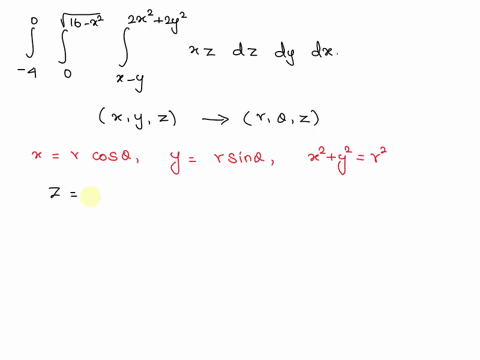 ∫_{-4}^{0} ∫_{0}^{√(16-x²)} ∫_{x-y}^{2x²+2y²} xz dz dy dx.
(x, y, z) → (r, θ, z)
x = r cosθ, y = r sinθ, x²+y² = r²
z =